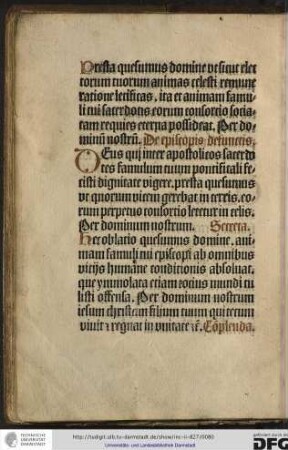 Presta quesumus domine vt sicut elec
torum tuorum animas celesti remune
ratione letificas, ita et animam famu
li tui sacerdotis eorum consortio socia
tam requies eterna possideat. Per do
minū nostrū. De episcopis defunctis.
DEus qui inter apostolicos sacerdo
tes famulum tuum pontificali fe
cisti dignitate vigere. presta quesumus
vt quorum vicem gerebat in terris. eo
rum perpetuo consortio letetur in celis.
Per dominum nostrum. Secreta.
Hec oblatio quesumus domine. ani
mam famuli tui episcopi ab omnibus
vicijs humane conditionis absoluat.
que ymmolata etiam tocius mundi tu
listi offensa. Per dominum nostrum
iesum christum filium tuum qui tecum
viuit ⁊ regnat in vnitate ⁊c̄. Cōplenda.
http://tudigit.ulb.tu-darmstadt.de/show/inc-ii-827/0080
Universitäts- und Landesbibliothek Darmstadt
TECHNISCHE
UNIVERSITÄT
DARMSTADT
DFG